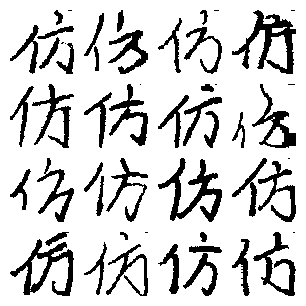 仿仿仿仿
仿仿仿仿
仿仿仿仿
仿仿仿仿